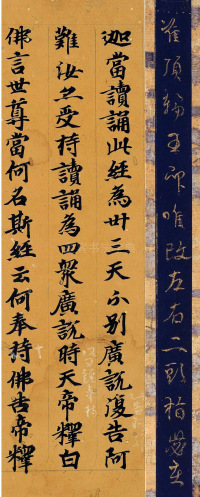 頂輪王印唯改左右二頭指
迦當讀誦此經為卅三天分別廣說復告阿
難汝亦受持讀誦為四衆廣說時天帝釋白
佛言世尊當何名斯經云何奉持佛告帝釋